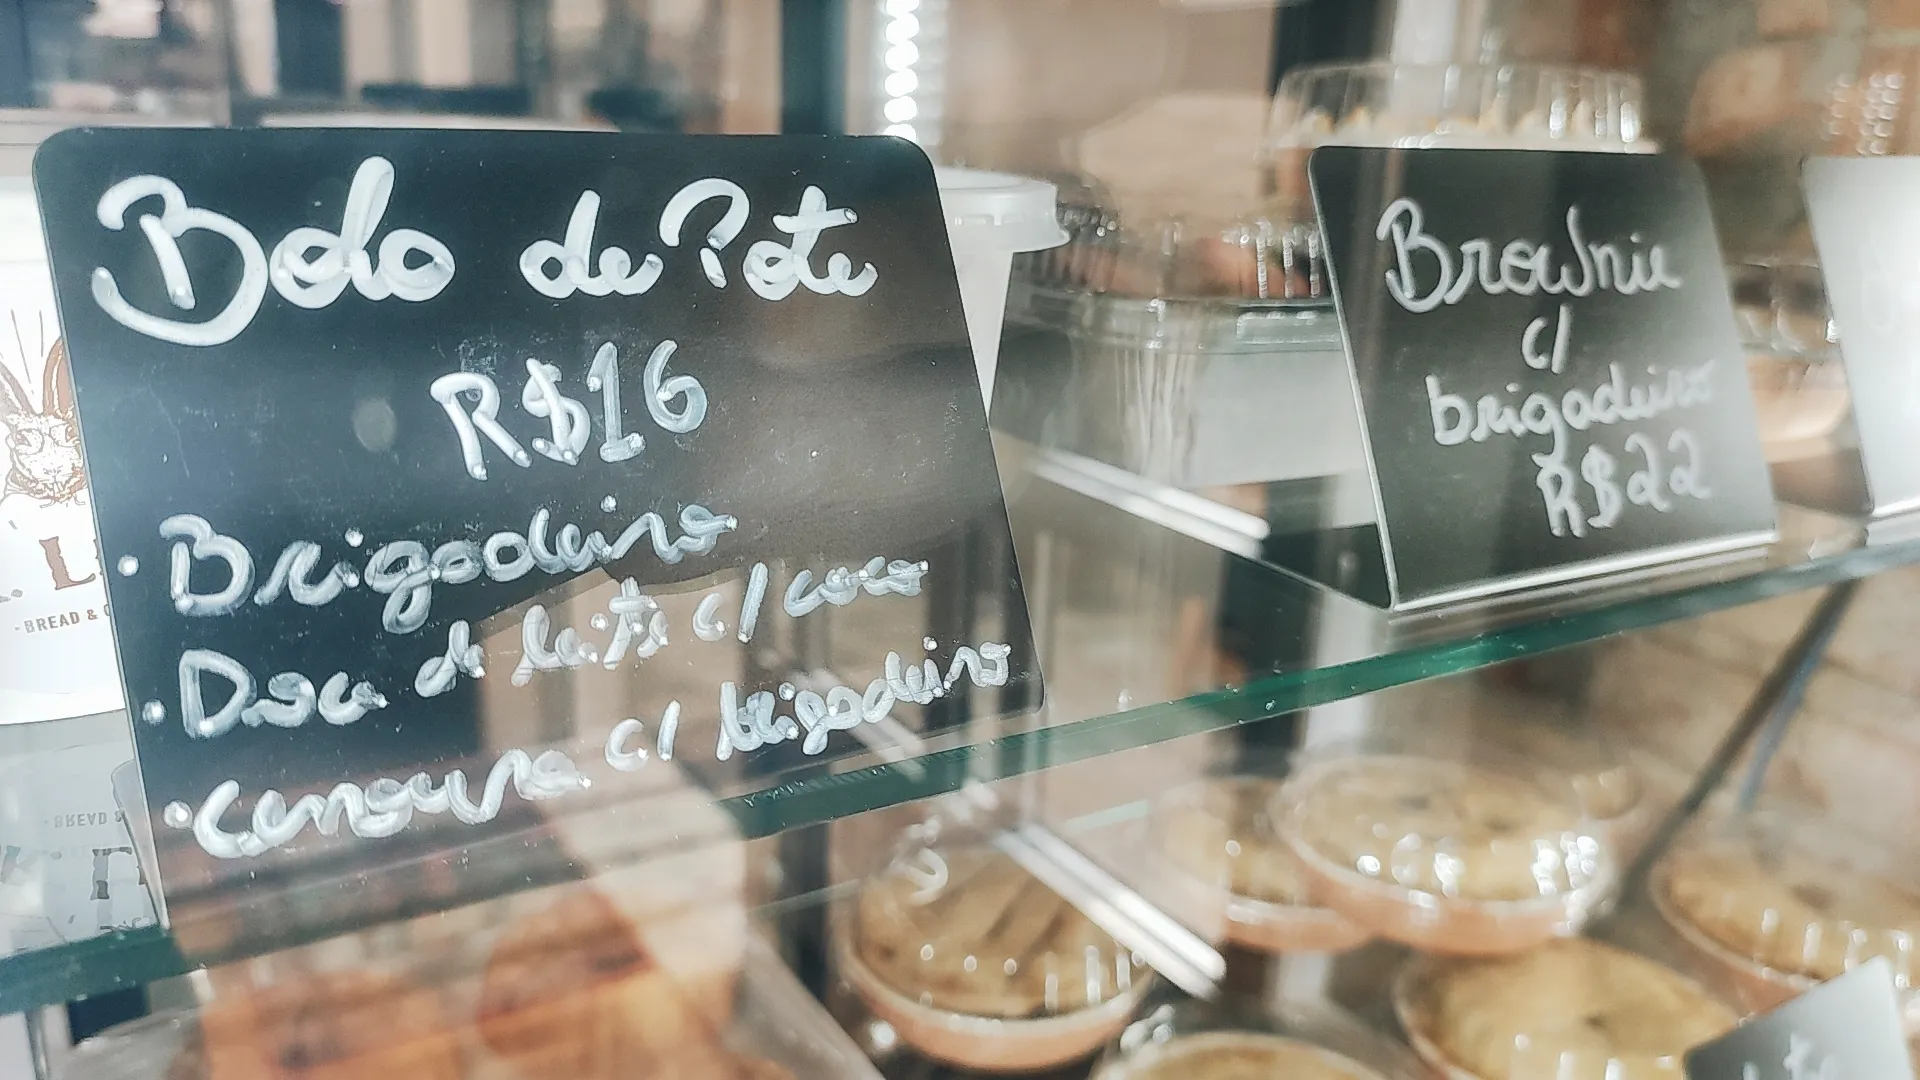 Bolo de Pote
R$16
• Brigadeiro
• Doce de leite c/ coco
• Cenoura c/ brigadeiro
Brownie
c/
brigadeiro
R$22
- BREAD &